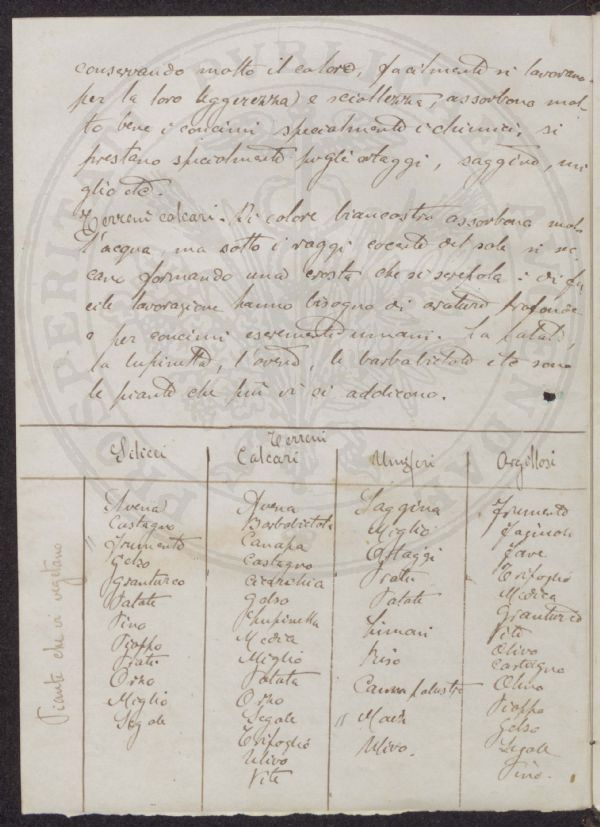 conservando molto il calore, facilmente si lavorano
per la loro leggerezza e scioltezza, assorbono mol-
to bene i concimi specialmente i chimici, si
prestano specialmente pegli ortaggi, saggina, mi
glio etc.
Terreni calcari. Di colore biancastro assorbono molta
l'acqua, ma sotto i raggi cocenti del sole si sec
cano formando una crosta che si screpola; di fa
cile lavorazione hanno bisogno di arature profonde
e per concimi escrementi umani. La patata,
la lupinella, l'avena, le barbabietole etc sono
le piante che più vi si addicono.
Terreni
Silicei Calcari Umiferi Argillosi
Piante che vi vegetano
Avena Avena Saggina Frumento
Castagno Barbabietola Miglio Fagiuoli
" Frumento Canapa Ortaggi Fave
Gelso Castagno Prato Trifoglio
Granturco Cicerchia Patate Medica
Patate Gelso Limoni Granturco
Pino Lupinella Riso Vite
Pioppo Medica Canna palustre Olivo
Prato Miglio " Mais Castagno
Orzo Patata Ulivo. Olivo
Miglio Orzo Pioppo
Segale Segale Gelso
Trifoglio Segale
Ulivo Pino.
Vite
PROSPERITATI PVBLICAE AVGENDAE